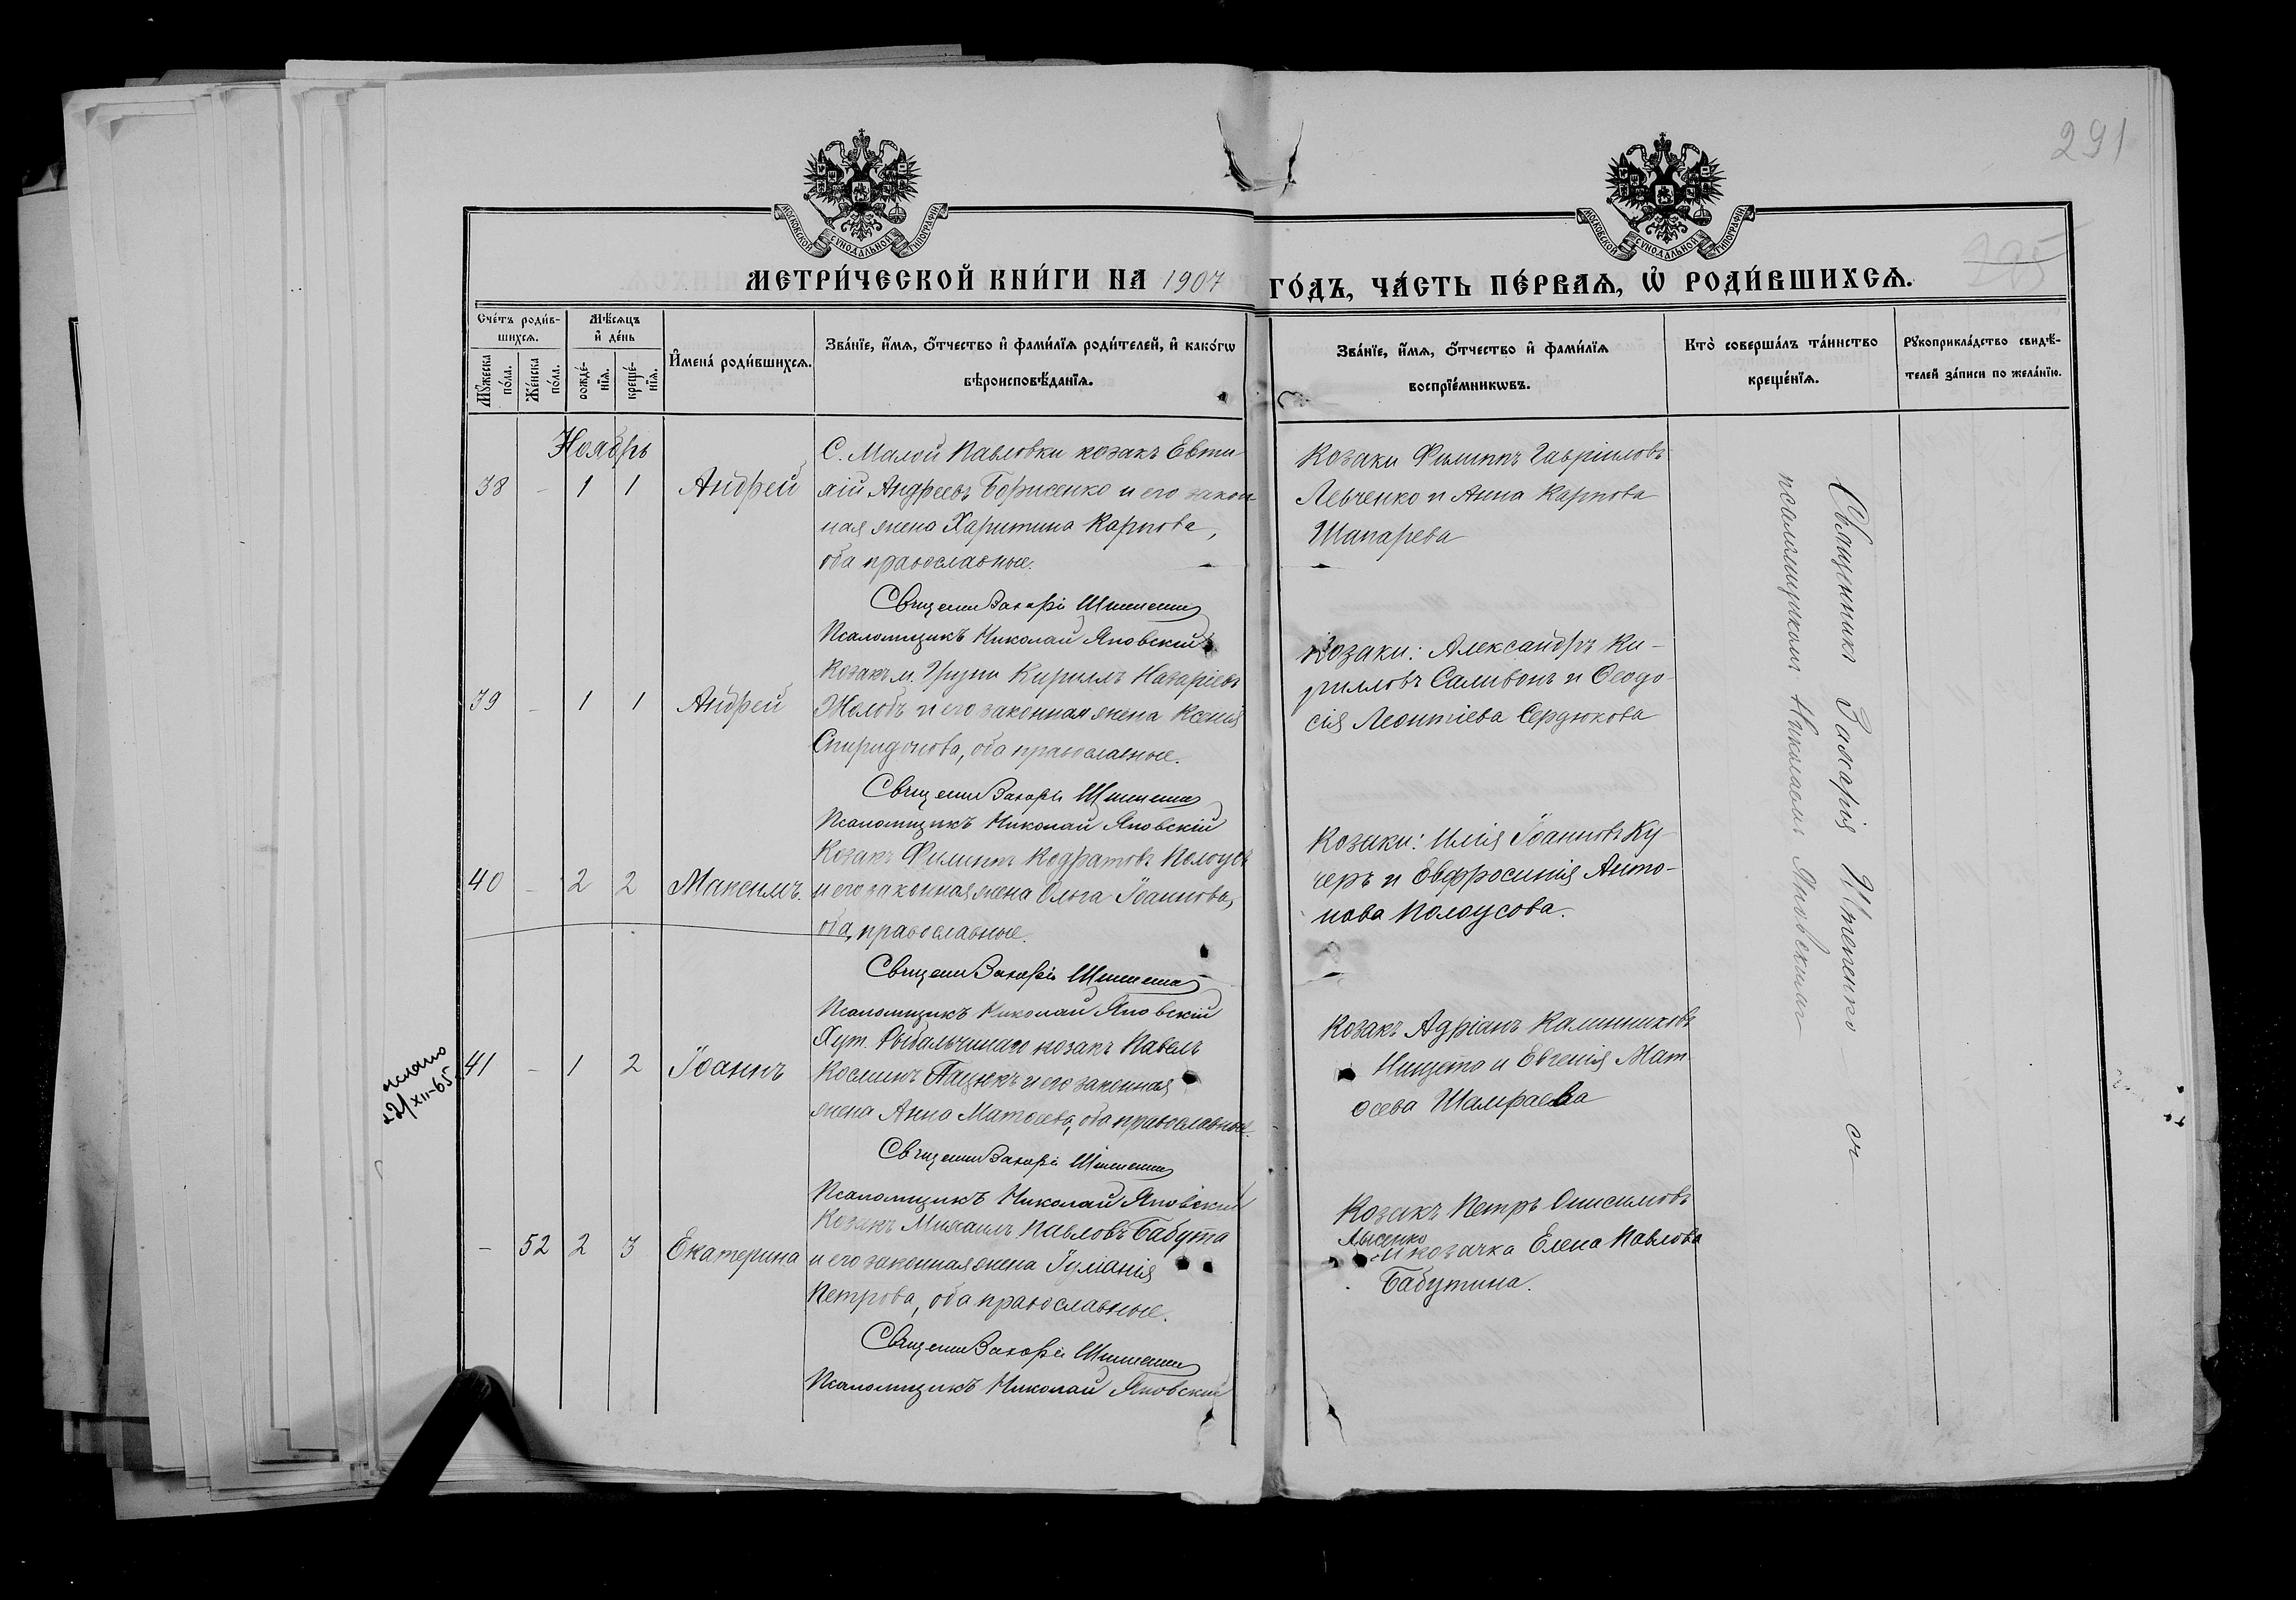 291
285
МОСКОВСКОЙ СѴНОДАЛЬНОЙ ТИПОГРАФІИ
МОСКОВСКОЙ СѴНОДАЛЬНОЙ ТИПОГРАФІИ
МЕТРИ́ЧЕСКОЙ КНИ́ГИ НА 1907 ГО́ДЪ, ЧА́СТЬ ПЕ́РВАѦ, Ѡ҆ РОДИ́ВШИХСѦ.
Сче́тъ роди́в-
шихсѧ.
Мꙋ́жеска по́ла.
Же́нска по́ла.
Мѣ́сѧцъ
и҆ де́нь
рожде́-
нїѧ.
креще́-
нїѧ.
И҆мена̀ роди́вшихсѧ.
Зва́нїе, и҆́мѧ, ѻ҆́тчество и҆ фами́лїѧ роди́телей, и҆ како́гѡ
вѣроисповѣ́данїѧ.
Зва́нїе, и҆́мѧ, ѻ҆́тчество и҆ фами́лїѧ
воспрїе́мникѡвъ.
Кто̀ соверша́лъ та́инство
креще́нїѧ.
Рꙋкоприкла́дство свидѣ́-
телей за́писи по жела́нїю.
Ноябрь
38 - 1 1 Андрей
С. Малой Павловки козакъ Евти-
мій Андреевъ Борисенко и его закон
ная жена Харитина Карпова,
оба православные.
Священ Захарі
Псаломщикъ Николай Яновскій
Козаки Филиппъ Гавріиловъ
Левченко и Анна Карпова
Шапарева
39 - 1 1 Андрей
Козакъ м. Груни Кириллъ Назаріевъ
Жолобъ и его законная жена Ксенія
Спиридонова, оба православные.
Священ Захарі
Псаломщикъ Николай Яновскій
Козаки: Александръ Ки-
рилловъ Саливонъ и Ѳеодо-
сія Леонтіева Сердюкова
40 - 2 2 Максимъ.
Козакъ Филиппъ Кодратовъ Колоусъ
и его законная жена Ольга Іоаннова,
оба православные.
Священ Захарі
Псаломщикъ Николай Яновскій
Козаки: Илія Іоанновъ Ку-
черъ и Евфросинія Анто-
нова Колоусова.
21/XII-65
41 - 1 2 Іоаннъ
Хут. Рыбальчинаго козакъ Павелъ
Косминъ Пацюкъ и его законная
жена Анна Матѳеева, оба православные.
Священ Захарі
Псаломщикъ Николай Яновскій
Козакъ Адріанъ Калинниковъ
Нищета и Евгенія Мат-
ѳеева Шамраева
- 52 2 3 Екатерина
Козакъ Михаилъ Павловъ Бабута
и его законная жена Іуліанія
Петрова, оба православные.
Священ Захарі
Псаломщикъ Николай Яновскій
Козакъ Петръ Онисимовъ
Лысенко
и козачка Елена Павлова
Бабутина.
Священникъ Захарія Ительенко съ
псаломщикомъ Николаемъ Яновскимъ